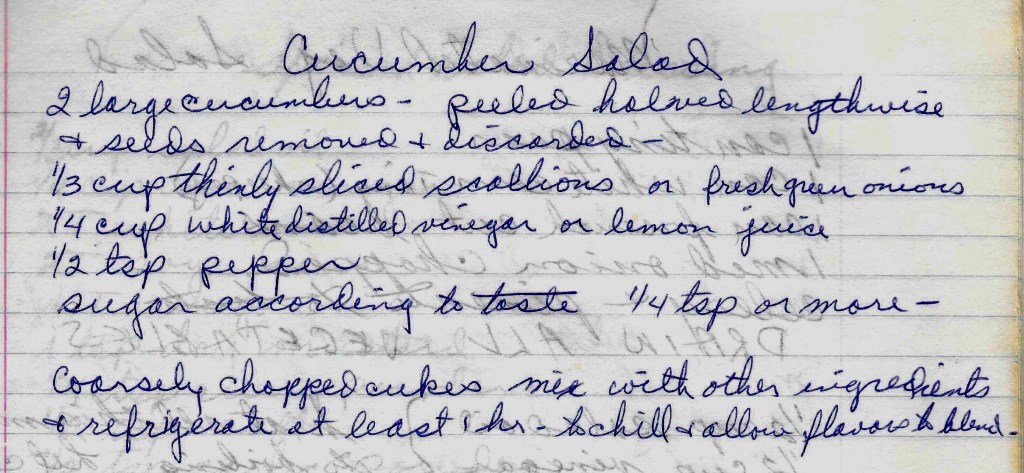 Cucumber Salad
2 large cucumbers - peeled halved lengthwise
+ seeds removed + discarded -
1/3 cup thinly sliced scallions or fresh green onions
1/4 cup white distilled vinegar or lemon juice
1/2 tsp pepper
sugar according to taste 1/4 tsp or more -
Coarsely chopped cukes mix with other ingredients
+ refrigerate at least 1 hr - to chill + allow flavors to blend -